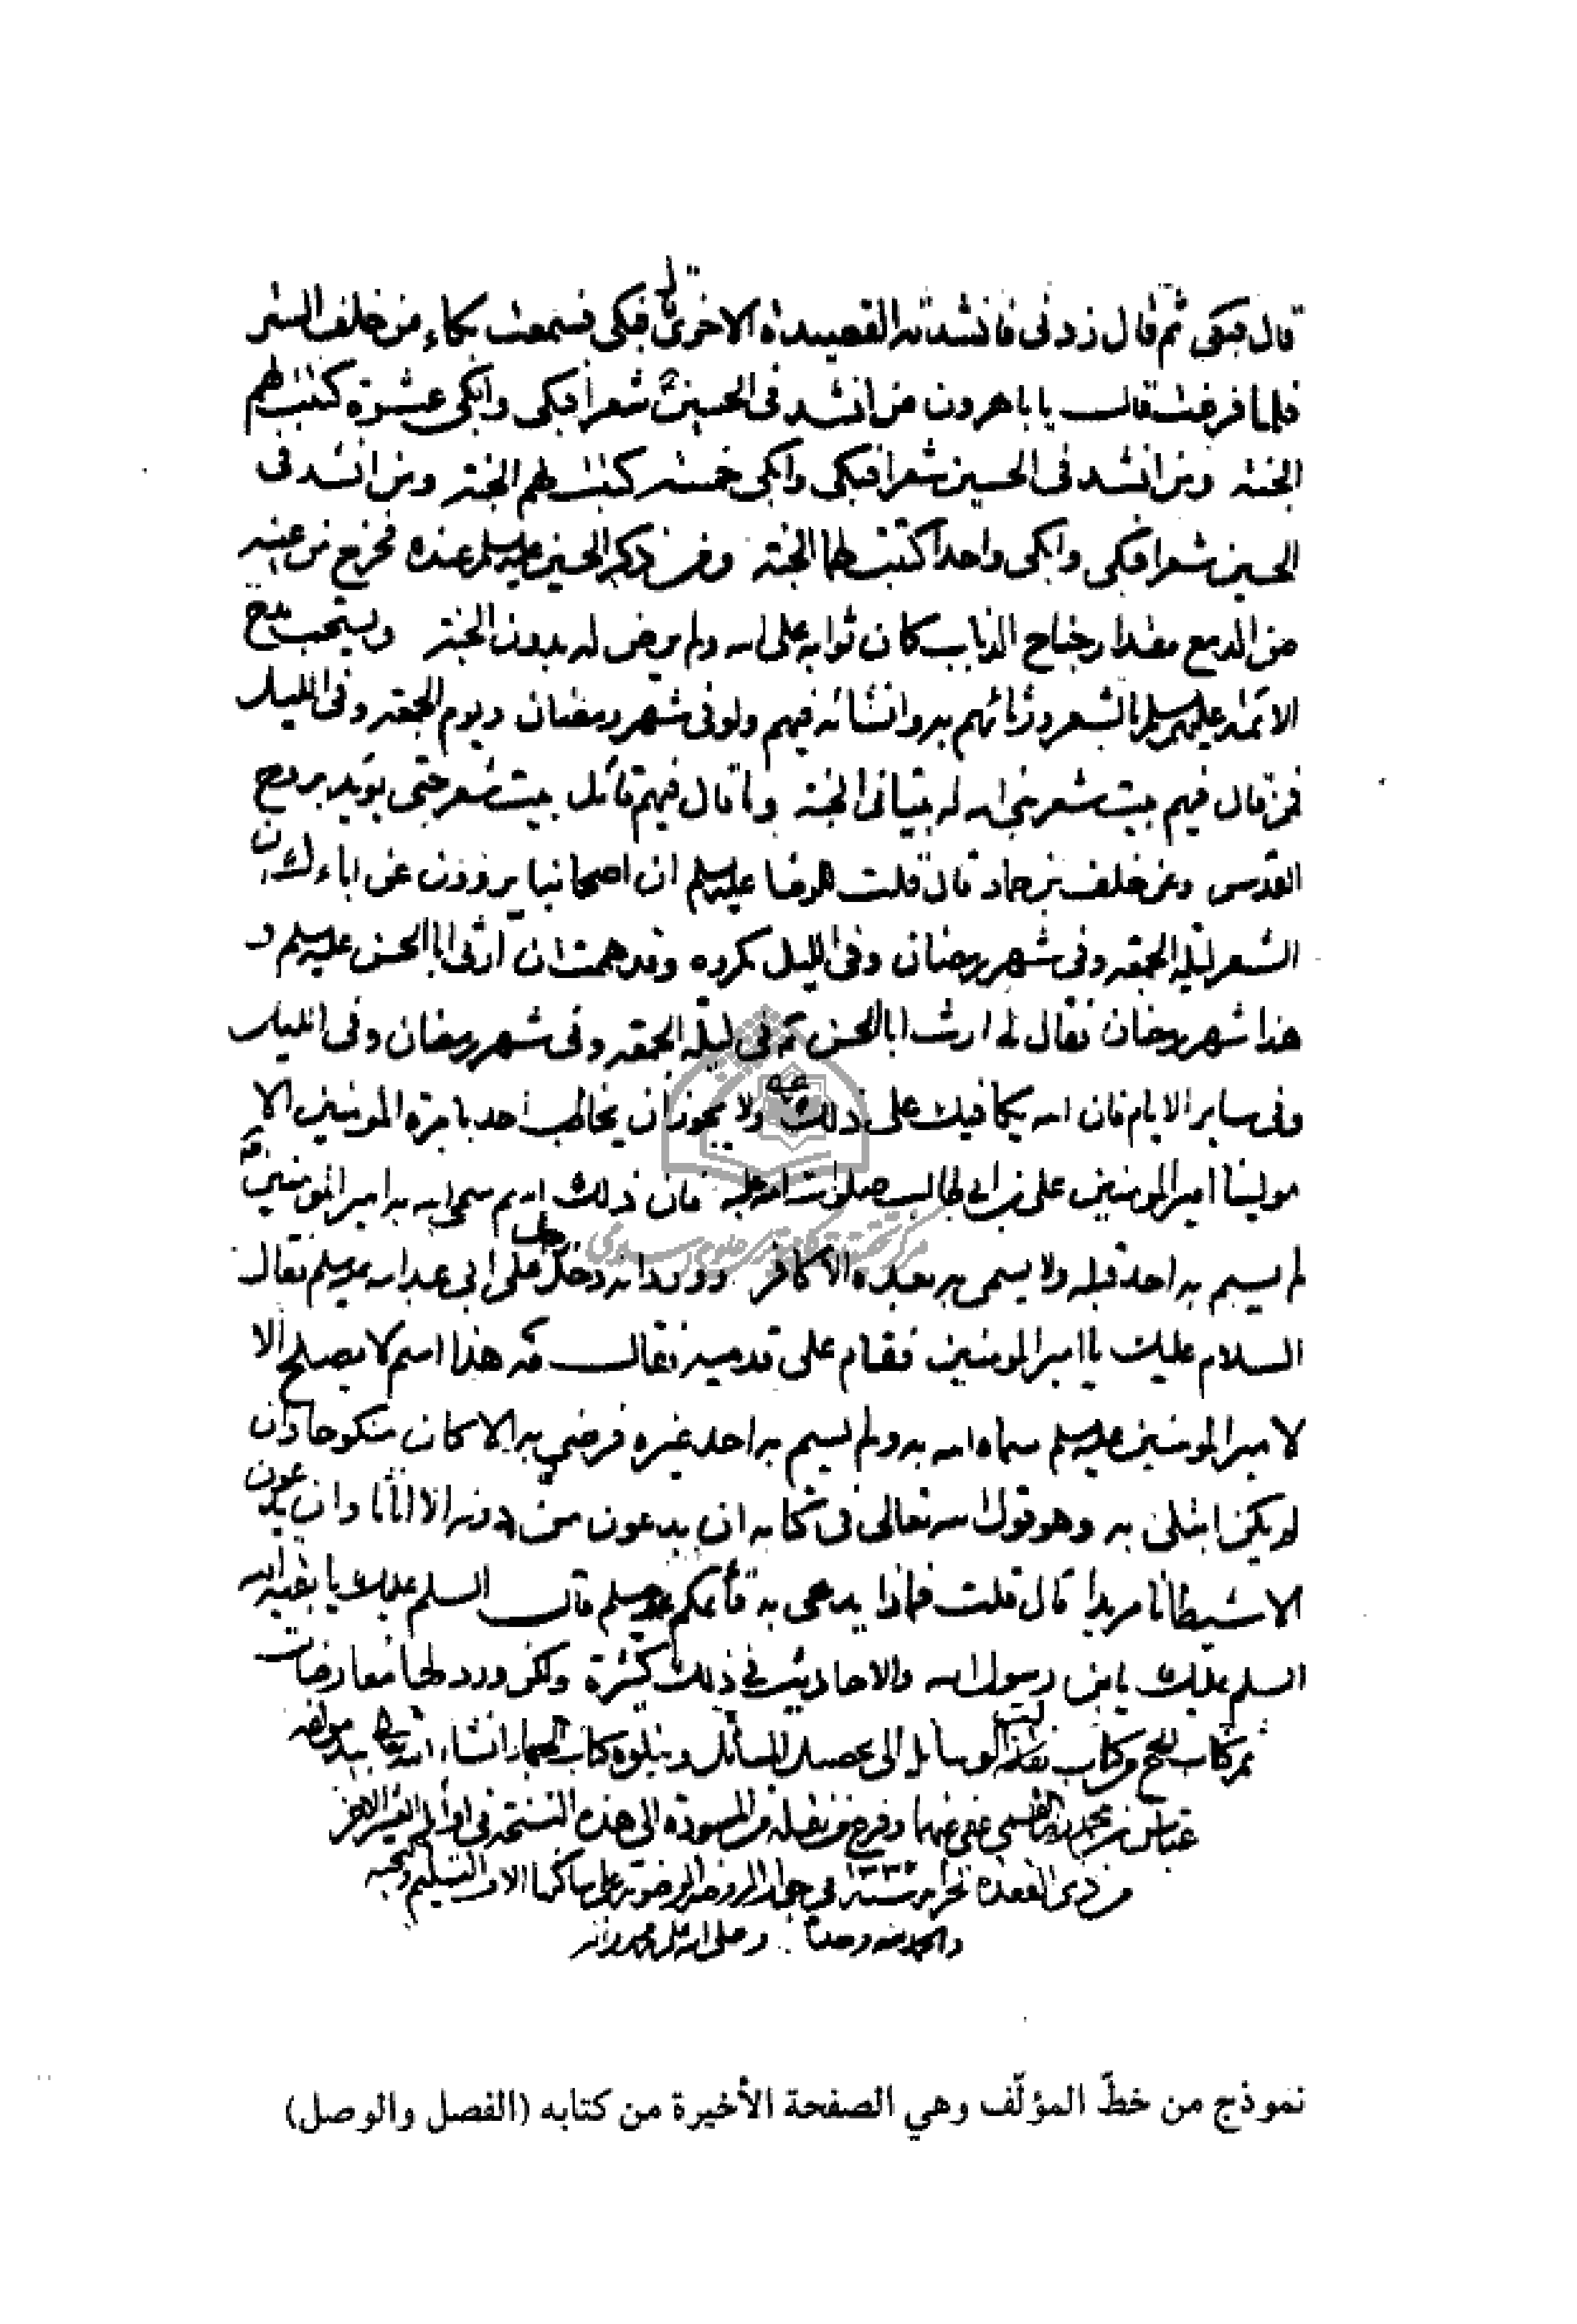 قال فبكى ثم قال زدنى فانشدته القصيدة الاخرى قال فبكى فسمعت بكاء من خلف الستر
فلما فرغت قال يا باهرون من انشد فى الحسين شعرا فبكى وابكى عشرة كتبت لهم
الجنة ومن انشد فى الحسين شعرا فبكى وابكى خمسة كتبت لهم الجنة ومن انشد فى
الحسين شعرا فبكى وابكى واحدا كتبت لهما الجنة ومن ذكر الحسين عليه السلم عنده فخرج من عينيه
من الدمع مقدار جناح الذباب كان ثوابه على الله ولم يرض له بدون الجنة ويستحب مدح
الائمة عليهم السلم بالشعر ورثائهم به وانشائه فيهم ولو فى شهر رمضان ويوم الجمعة وفى الليل
فمن قال فيهم بيت شعر بنى الله له بيتا فى الجنة وما قال فيهم قائل بيت شعر حتى يؤيد بروح
القدس وعن خلف بن حماد قال قلت للرضا عليه السلم ان اصحابنا يروون عن اباءك ان
الشعر ليلة الجمعة وفى شهر رمضان وفى الليل مكروه وقد هممت ان ارثى ابا الحسن عليه السلم و
هذا شهر رمضان فقال لى ارث ابا الحسن فى ليلة الجمعة وفى شهر رمضان وفى الليل
وفى ساير الايام فان الله يكافيك على ذلك ولا يجوز ان يخاطب احد بامرة المومنين الا
مولينا امير المومنين على بن ابى طالب صلوات الله عليه فان ذلك اسم سمى الله به امير المومنين
لم يسم به احد قبله ولا يسمى به بعده الا كافر وورد انه دخل رجل على ابى عبد الله عليه السلم فقال
السلام عليك يا امير المومنين فقام على قدميه فقال مه هذا اسم لا يصلح الا
لامير المومنين عليه السلم سماه الله به ولم يسم به احد غيره فرضى به الا كان منكوحا وان
لم يكن ابتلى به وهو قول الله تعالى فى كتابه ان يدعون من دونه الا اناثا وان يدعون
الا شيطانا مريدا قال قلت فماذا يدعى به قائمكم عليه السلم قال السلم عليك يا بقية الله
السلم عليك يابن رسول الله والاحاديث في ذلك كثيرة ولكن ورد لها معارضات
تم كتاب الحج من كتاب الوسائل الى تحصيل المسائل ويتلوه كتاب الجهاد انشاء الله تعالى بيد مولفه
عباس بن محمد رضا القمي عفى عنهما وفرغ من نقله من المسودة الى هذه النسخة فى اوائل العشر الاخر
من ذى القعدة الحرام سنة ١٣٣٢ في جوار الروضة الرضوية على ساكنها الاف التسليم والتحية
والحمد لله وحده وصلى الله على محمد واله
نموذج من خطّ المؤلّف وهي الصفحة الأخيرة من كتابه (الفصل والوصل)